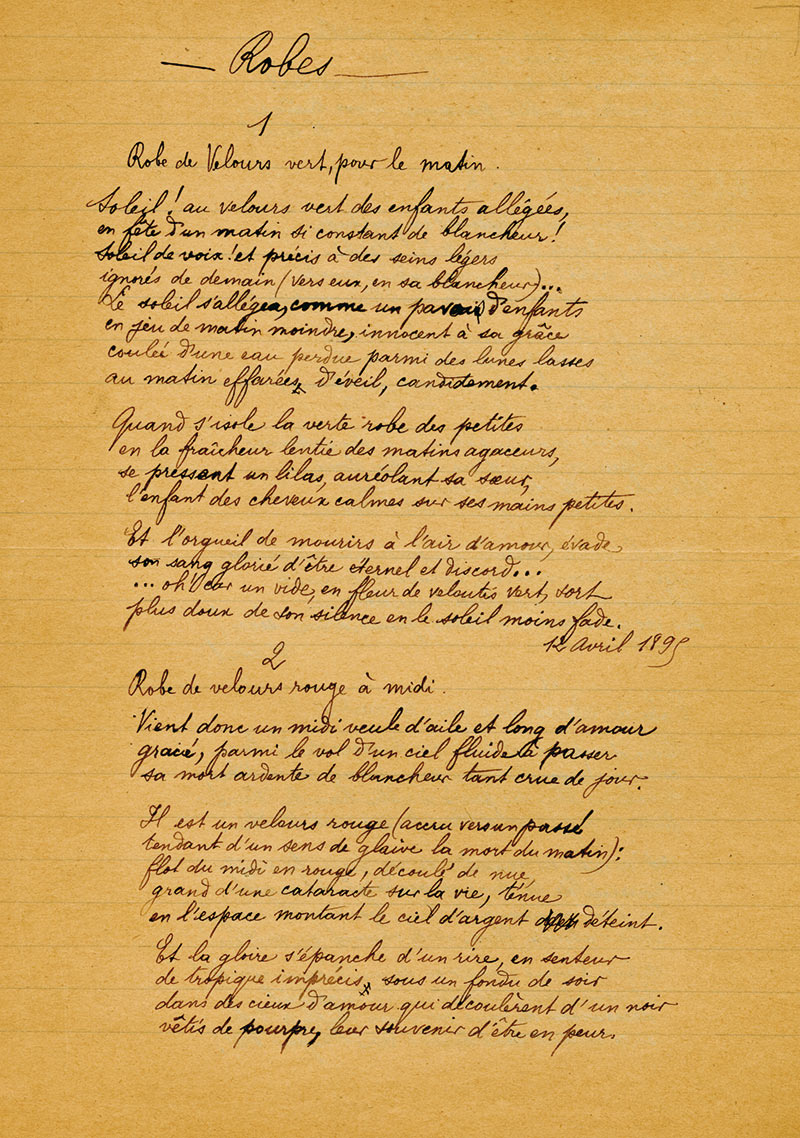 — Robes —
1
Robe de Velours vert, pour le matin.
Soleil! au velours vert des enfants allégées,
en fête d'un matin si constant de blancheur!
Soleil de voix! et précis à des seins légers
ignorés de demain (vers eux, en sa blancheur)...
Le soleil s'allégea, comme un pavois d'enfants
en jeu de matin moindre, innocent à sa grâce
coulée d'une eau perdue parmi des lunes lasses
au matin effarées, d'éveil, candidement.
Quand s'isole la verte robe des petites
en la fraîcheur lentie des matins agaceurs,
se pressent un lilas, auréolant sa sœur,
l'enfant des cheveux calmes sur ses mains petites.
Et l'orgueil de mourirs à l'air d'amour, évade
son sang glorié d'être éternel et discord...
... oh! car un vide, en fleur de veloutis vert, sort
plus doux de son silence en le soleil moins fade.
12 Avril 1895
2
Robe de velours rouge à midi.
Vient donc un midi veule d'aile et long d'amour
gracié, parmi le vol d'un ciel fluide à passer
sa mort ardente de blancheur tant crue de jour.
Il est un velours rouge (accru vers un passé
tendant d'un sens de glaive la mort du matin):
flot du midi en rouge, découlé de nue,
grand d'une cataracte sur la vie, ténue
en l'espace montant le ciel d'argent déteint.
Et la gloire s'épanche d'un rire, en senteur
de tropique imprécis, sous un fondu de soir
dans des cieux d'amour qui découlèrent d'un noir
vêtis de pourpre, leur souvenir d'être en peur.